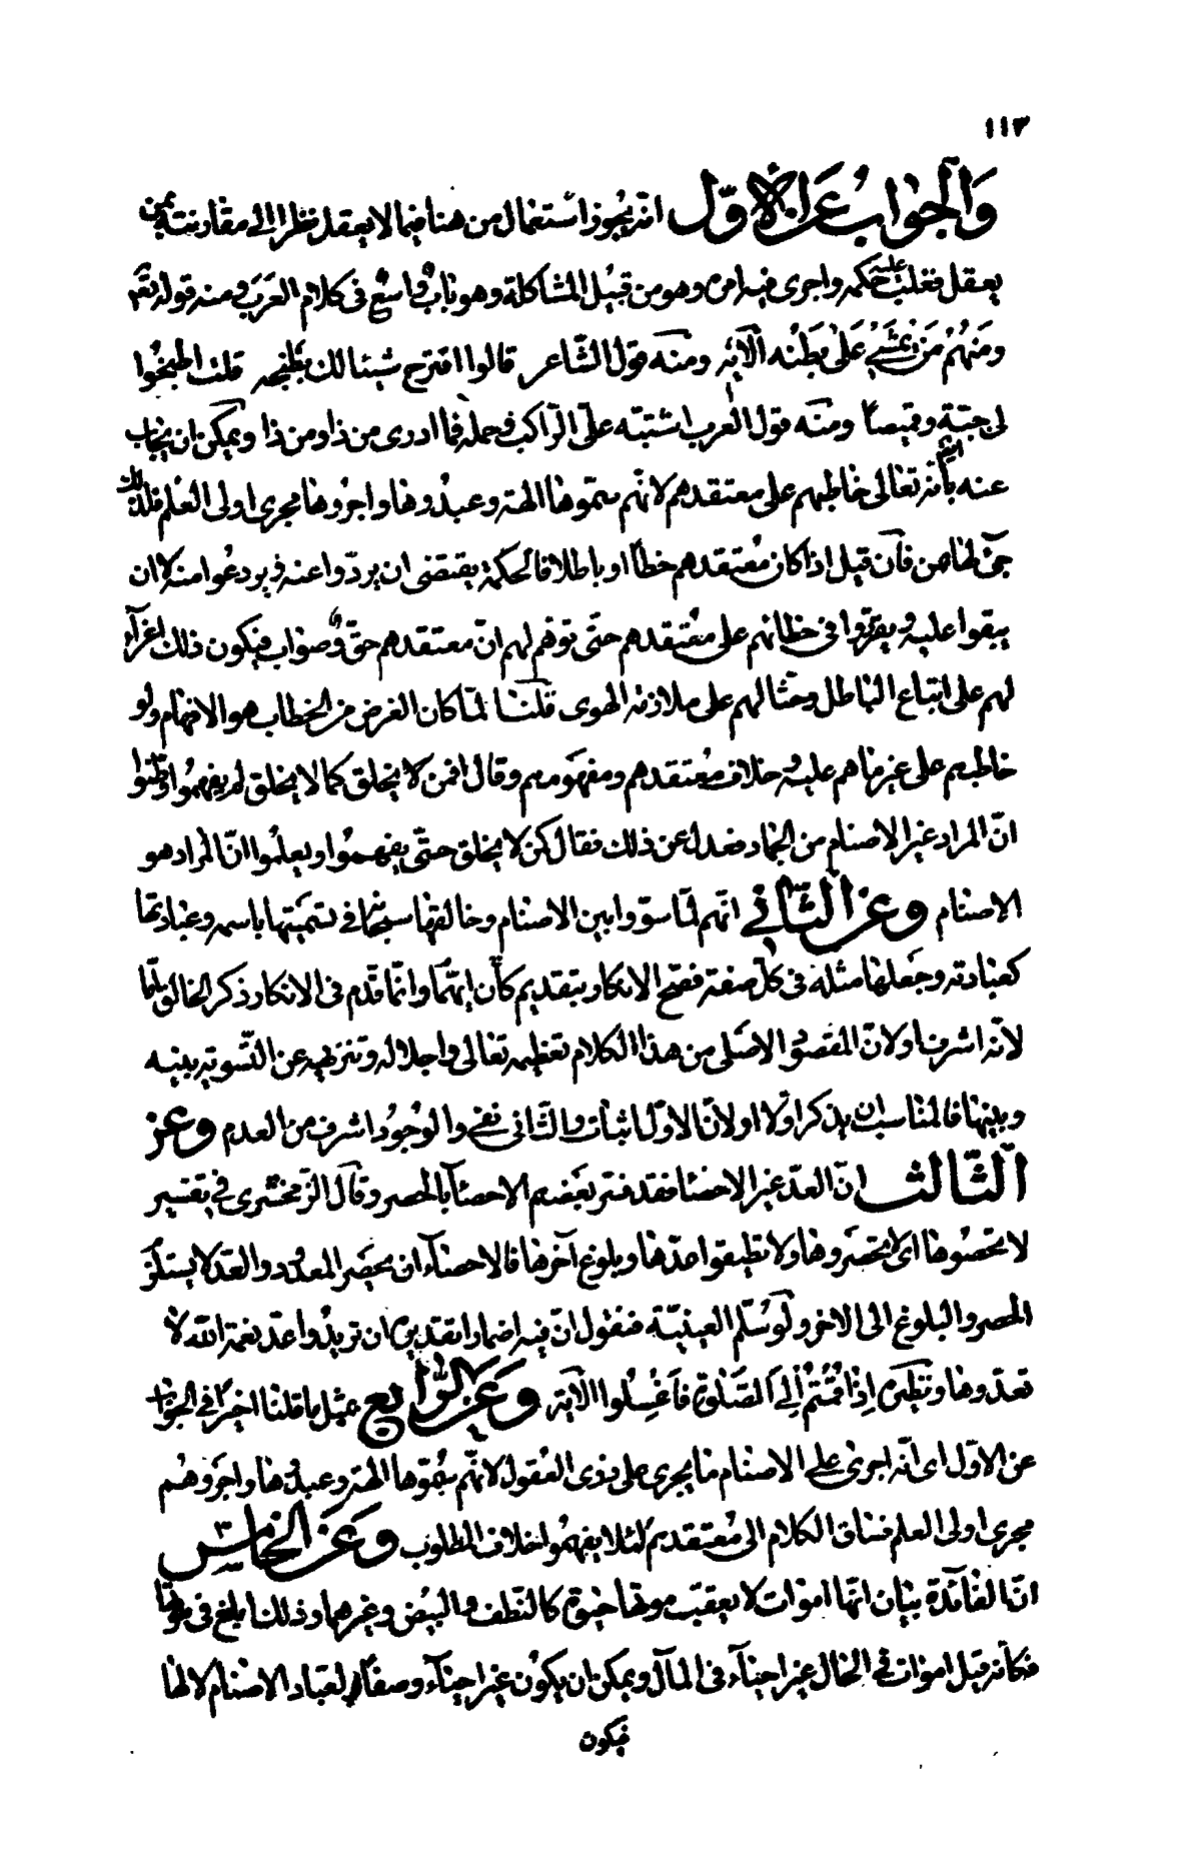 ١١٣
والجواب عن الاوّل انّه يجوز استعمال من هنا فيما لا يعقل نظرا الى مقارنته بمن
يعقل فغلب عليه حكمه واجرى فيه امره وهو من قبيل المشاكلة وهو باب واسع فى كلام العرب ومنه قوله تعـ
ومنهم من يمشى على بطنه الآية ومنه قول الشاعر قالوا اقترح شيئا لك نطبخه قلت اطبخوا
لى جبّة وقميصا ومنه قول العرب اشتبه علىّ الرّاكب وحمله فما ادرى من ذا ومن ذا ويمكن ان يجاب
عنه ايضا بأنه تعالى خاطبهم على معتقدهم لانّهم سمّوها الهة وعبدوها واجروها مجرى اولى العلم فلذلك
جئ لها بمن فآن قيل اذا كان معتقدهم خطأ او باطلا فالحكمة يقتضى ان يردّوا عنه ويردعوا منه لا ان
يبقوا عليه ويقرّوا فى خطائهم على معتقدهم حتّى توهّم لهم انّ معتقدهم حقّ وصواب فيكون ذلك اغرآء
لهم على اتباع الباطل وحثا لهم على ملازمة الهوى قلنا لمّا كان الغرض من الخطاب هو الافهام ولو
خاطبهم على غير ما هم عليه وخلاف معتقدهم ومفهومهم وقال افمن لا يخلق كما لا يخلق لم يفهموا وظنوا
انّ المراد غير الاصنام من الجماد فعدل عن ذلك فقال كمن لا يخلق حتّى يفهموا ويعلموا انّ المراد هو
الاصنام وعن الثّانى انّهم لمّا سوّوا بين الاصنام وخالقها سبحانه فى تسميتها باسمه وعبادتها
كعبادته وجعلها مثله فى كلّ صفته فصحّ الانكار بتقديم كأن ايّهما وانّما قدّم فى الانكار ذكر الخالق
لانّه اشرف اولا ولانّ المقصود الاصلى من هذا الكلام تعظيمه تعالى واجلاله وتنزيهه عن التّسوية بينه
وبينها فالمناسب ان يذكر اوّلا ولانّ الاوّل اثبات والثّانى نفى والوجود اشرف من العدم وعن
الثّالث انّ العدّ غير الاحصاء فقد فسّر بعضهم الاحصآء بالحصر وقال الزّمخشرى فى تفسير
لا تحصوها اى لا تحصروها ولا تطيقوا عدّها وبلوغ آخرها فالاحصآء ان يحصر المعدود والعدّ لا يستلزم
الحصر والبلوغ الى الاخر ولو سُلّم العينيّة فنقول انّ فيه اضمارا تقديره ان تريدوا عدّ نعمة الله لا
تعدّوها ونظيره اذا قمتم الى الصّلوة فاغسلوا الآية وعن الرّابع بمثل ما قلنا اخيرا فى الجواب
عن الاوّل اى انّه اجرى على الاصنام ما يجرى على ذوى العقول لانّهم سمّوها الهة وعبدوها واجروهم
مجرى اولى العلم فساق الكلام الى معتقدهم لئلا يفهموا خلاف المطلوب وعن الخامس
انّ الفائدة بيان انّها اموات لا يعقب موتها حيوة كالنّطف والبيض وغيرهما وذلك ابلغ فى موتها
فكأنه قيل اموات فى الحال غير احيآء فى المآل ويمكن ان يكون غير احيآء وصفا لعباد الاصنام لا لها
فيكون